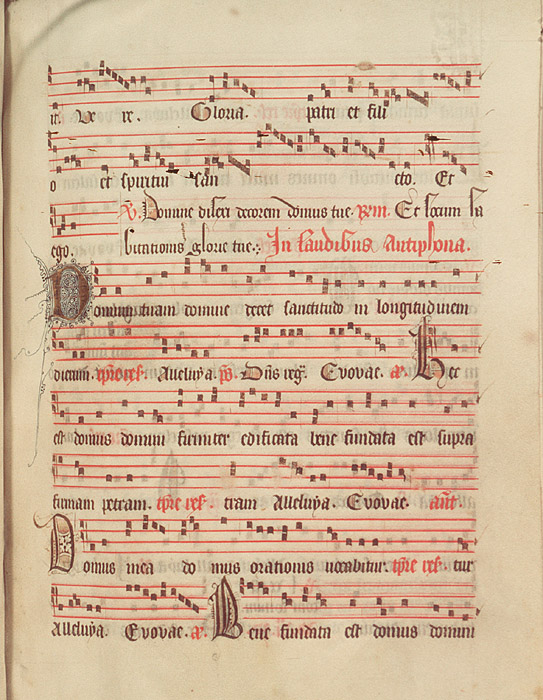 it. Ve re. Gloria. patri et fili
o et spiritui san cto. Et
℣. Domine dilexi decorem domus tue. Rm. Et locum ha
ego. bitationis glorie tue. In laudibus Antiphona.
Domum tuam domine decet sanctitudo in longitudinem
dierum. tpre res. Alleluya. ps. Dns reg. Evovae. a. Hec
est domus domini firmiter edificata bene fundata est supra
firmam petram. tpre res. tram Alleluya. Evovae. ant.
Domus mea do mus orationis vocabitur. tpre res. tur
Alleluya. Evovae. a. Bene fundata est domus domini